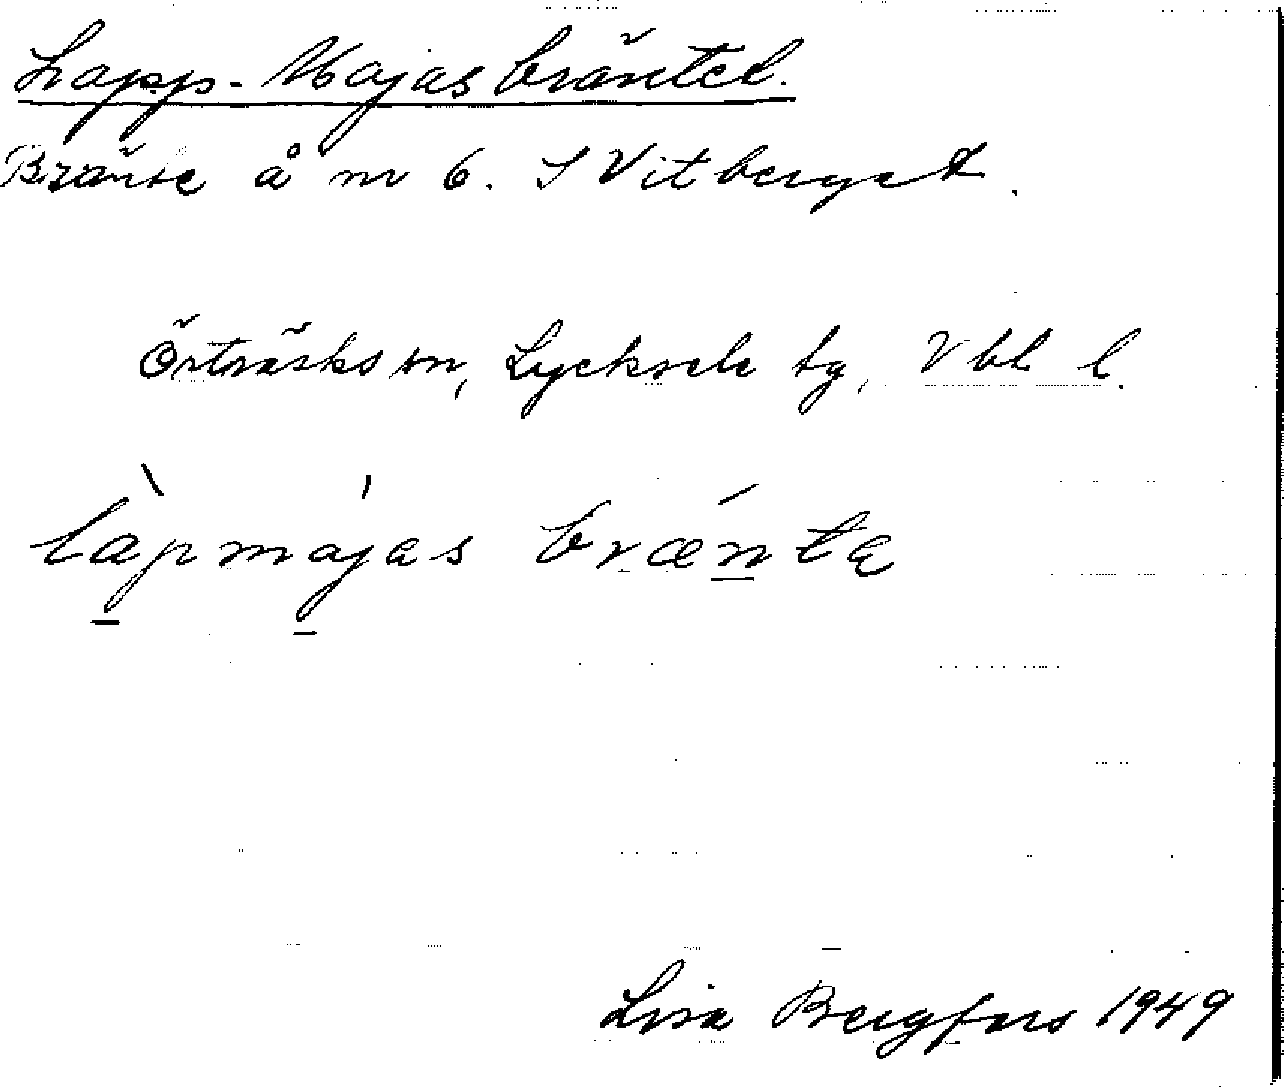 Lapp-Majasbräntet.
Bränte å nr 6. S Vitberget.
Örträsks sn, Lycksele tg, Vbl l.
làpmájas brænta
Lisa Bergfors 1949